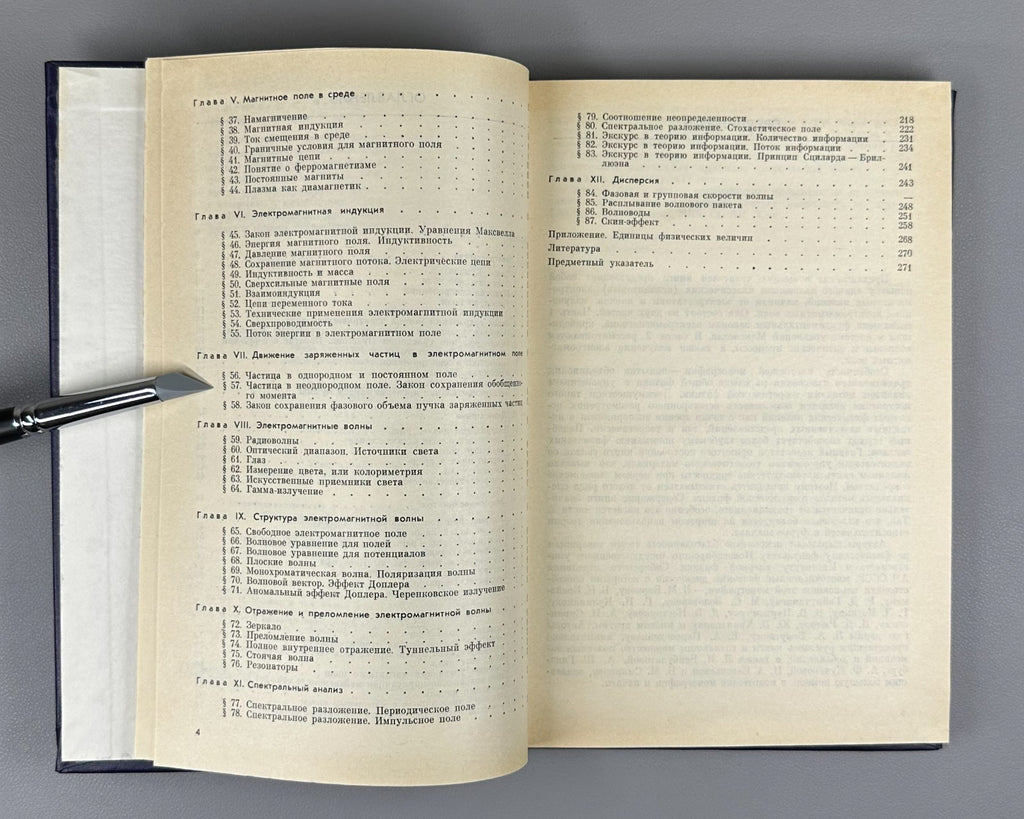 Глава V. Магнитное поле в среде
§ 37. Намагничение
§ 38. Магнитная индукция
§ 39. Ток смещения в среде
§ 40. Граничные условия для магнитного поля
§ 41. Магнитные цепи
§ 42. Понятие о ферромагнетизме
§ 43. Постоянные магниты
§ 44. Плазма как диамагнетик
Глава VI. Электромагнитная индукция
§ 45. Закон электромагнитной индукции. Уравнения Максвелла
§ 46. Энергия магнитного поля. Индуктивность
§ 47. Давление магнитного поля
§ 48. Сохранение магнитного потока. Электрические цепи
§ 49. Индуктивность и масса
§ 50. Сверхсильные магнитные поля
§ 51. Взаимоиндукция
§ 52. Цепи переменного тока
§ 53. Технические применения электромагнитной индукции
§ 54. Сверхпроводимость
§ 55. Поток энергии в электромагнитном поле
Глава VII. Движение заряженных частиц в электромагнитном поле
§ 56. Частица в однородном и постоянном поле
§ 57. Частица в неоднородном поле. Закон сохранения обобщенно-
го момента
§ 58. Закон сохранения фазового объема пучка заряженных частиц
Глава VIII. Электромагнитные волны
§ 59. Радиоволны
§ 60. Оптический диапазон. Источники света
§ 61. Глаз
§ 62. Измерение цвета, или колориметрия
§ 63. Искусственные приемники света
§ 64. Гамма-излучение
Глава IX. Структура электромагнитной волны
§ 65. Свободное электромагнитное поле
§ 66. Волновое уравнение для полей
§ 67. Волновое уравнение для потенциалов
§ 68. Плоские волны
§ 69. Монохроматическая волна. Поляризация волны
§ 70. Волновой вектор. Эффект Доплера
§ 71. Аномальный эффект Доплера. Черенковское излучение
Глава X. Отражение и преломление электромагнитной волны
§ 72. Зеркало
§ 73. Преломление волны
§ 74. Полное внутреннее отражение. Туннельный эффект
§ 75. Стоячая волна
§ 76. Резонаторы
Глава XI. Спектральный анализ
§ 77. Спектральное разложение. Периодическое поле
§ 78. Спектральное разложение. Импульсное поле
4
§ 79. Соотношение неопределенности 218
§ 80. Спектральное разложение. Стохастическое поле 222
§ 81. Экскурс в теорию информации. Количество информации 231
§ 82. Экскурс в теорию информации. Поток информации 234
§ 83. Экскурс в теорию информации. Принцип Сциларда — Брил-
люэна 241
Глава XII. Дисперсия 243
§ 84. Фазовая и групповая скорости волны —
§ 85. Расплывание волнового пакета 248
§ 86. Волноводы 251
§ 87. Скин-эффект 258
Приложение. Единицы физических величин 268
Литература 270
Предметный указатель 271